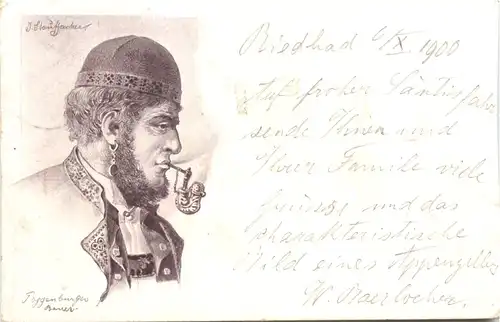 J. Stauffacher
Riedbad 6/X. 1900
Auf froher Säntisfahrt
sende Ihnen und
Ihrer Familie viele
Grüsse und das
charakteristische
Bild eines Appenzellers
W. Baerlocher.
Toggenburger
Bauer.